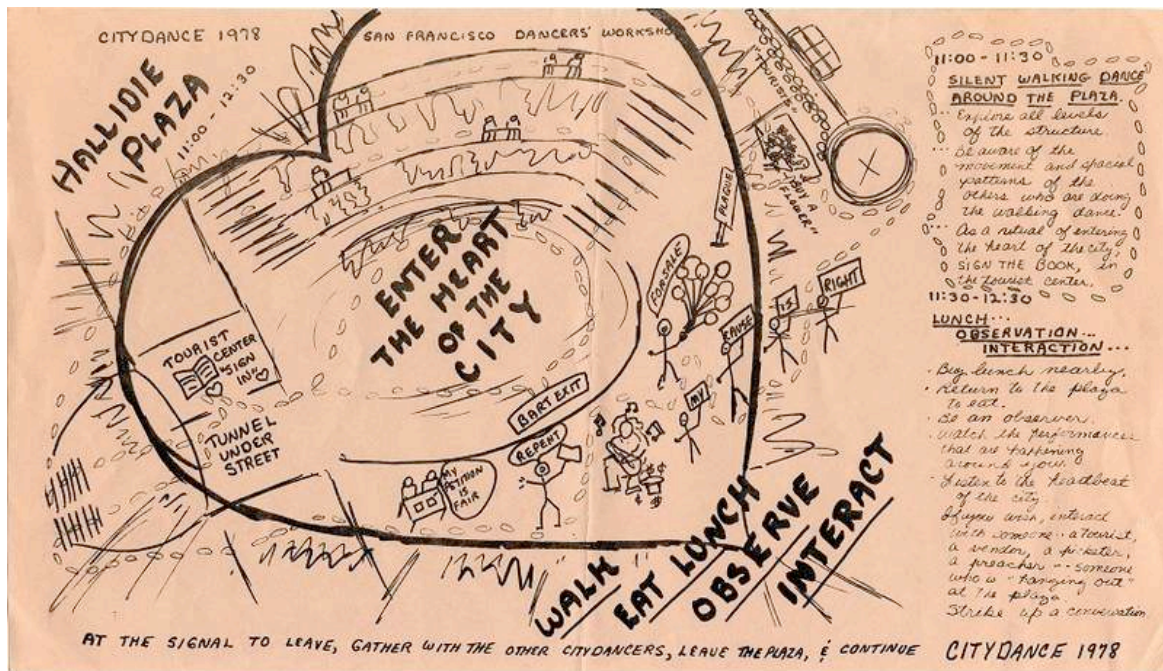 CITYDANCE 1978
SAN FRANCISCO DANCERS' WORKSHOP
HALLIDIE
PLAZA
11:00 - 12:30
ENTER
THE HEART
OF THE
CITY
TOURIST
CENTER
"SIGN
IN"
TUNNEL
UNDER
STREET
BART EXIT
MY
PETITION
IS
FAIR
REPENT
FOR SALE
PLAQUE
"TOURISTS"
"BUY A
FLOWER"
MY
CAUSE
IS
RIGHT
$ $
WALK
EAT LUNCH
OBSERVE
INTERACT
11:00 - 11:30
SILENT WALKING DANCE
AROUND THE PLAZA.
... Explore all levels
of the structure.
... Be aware of the
movement and spacial
patterns of the
others who are doing
the walking dance.
... As a ritual of entering
the heart of the city,
SIGN THE BOOK, in
the tourist center.
11:30 - 12:30
LUNCH...
OBSERVATION...
INTERACTION...
· Buy lunch nearby.
· Return to the plaza
to eat.
· Be an observer.
· Watch the performances
that are happening
around you.
· Listen to the heartbeat
of the city.
If you wish, interact
with someone - a tourist,
a vendor, a picketer,
a preacher -- someone
who is "hanging out"
at the plaza.
Strike up a conversation
AT THE SIGNAL TO LEAVE, GATHER WITH THE OTHER CITYDANCERS, LEAVE THE PLAZA, & CONTINUE
CITYDANCE 1978